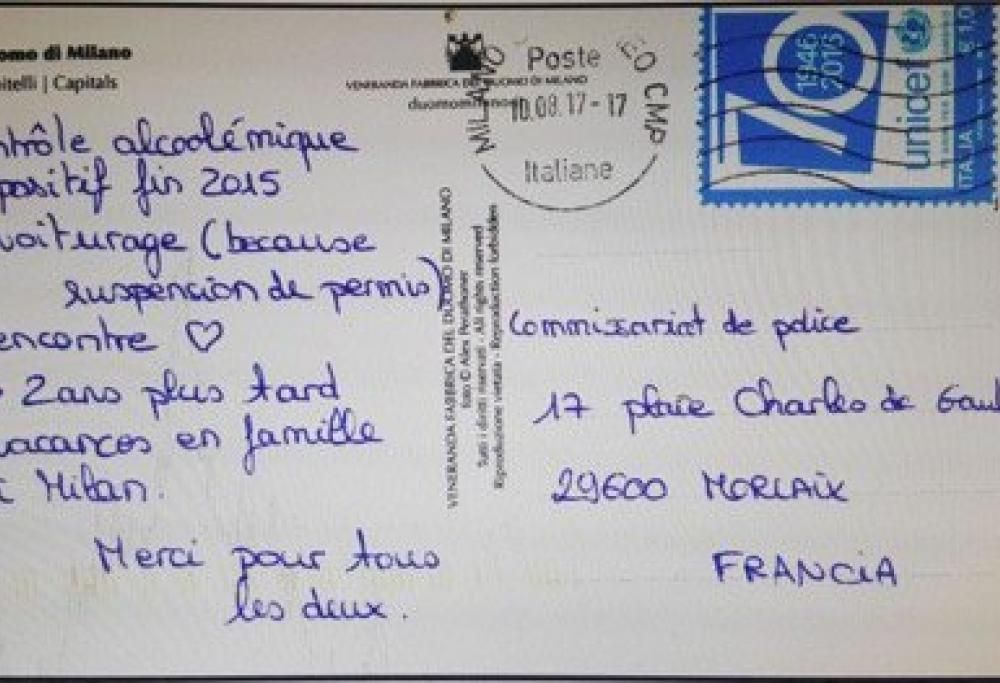 omo di Milano
itelli | Capitals
ntrôle alcoolémique
positif fin 2015
voiturage (because
suspension de permis)
encontre ♡
2 ans plus tard
vacances en famille
Milan.
Merci pour tous
les deux.
VENERANDA FABBRICA DEL DUOMO DI MILANO
duomomilano
MILANO
Poste
CMP
10.08.17-17
Italiane
VENERANDA FABBRICA DEL DUOMO DI MILANO
foto © Alex Perathoner
Tutti i diritti riservati - All rights reserved
Reproduzione vietata - Reproduction forbidden
70
1946
2016
unicef
ITALIA
Commissariat de police
17 place Charles de Gaul
29600 MORLAIX
FRANCIA